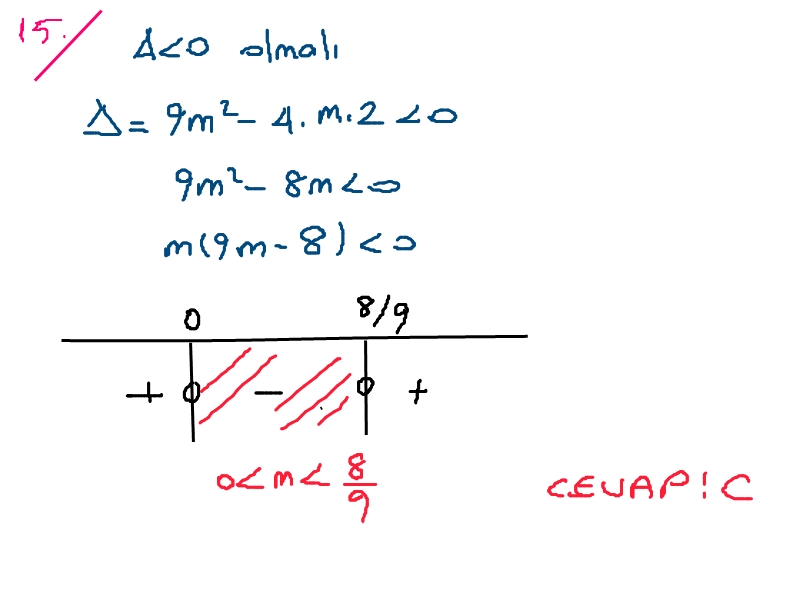 15.
Δ<0 olmalı
Δ= 9m²- 4.m.2 <0
9m²- 8m<0
m(9m-8)<0
0 8/9
+ - +
0<m<8/9
CEVAP: C